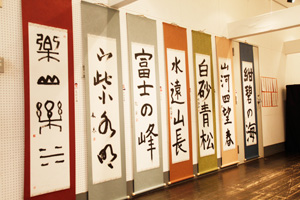 樂山樂水
山紫水明
富士の峰
水遠山長
白砂青松
山河四望春
紺碧の海